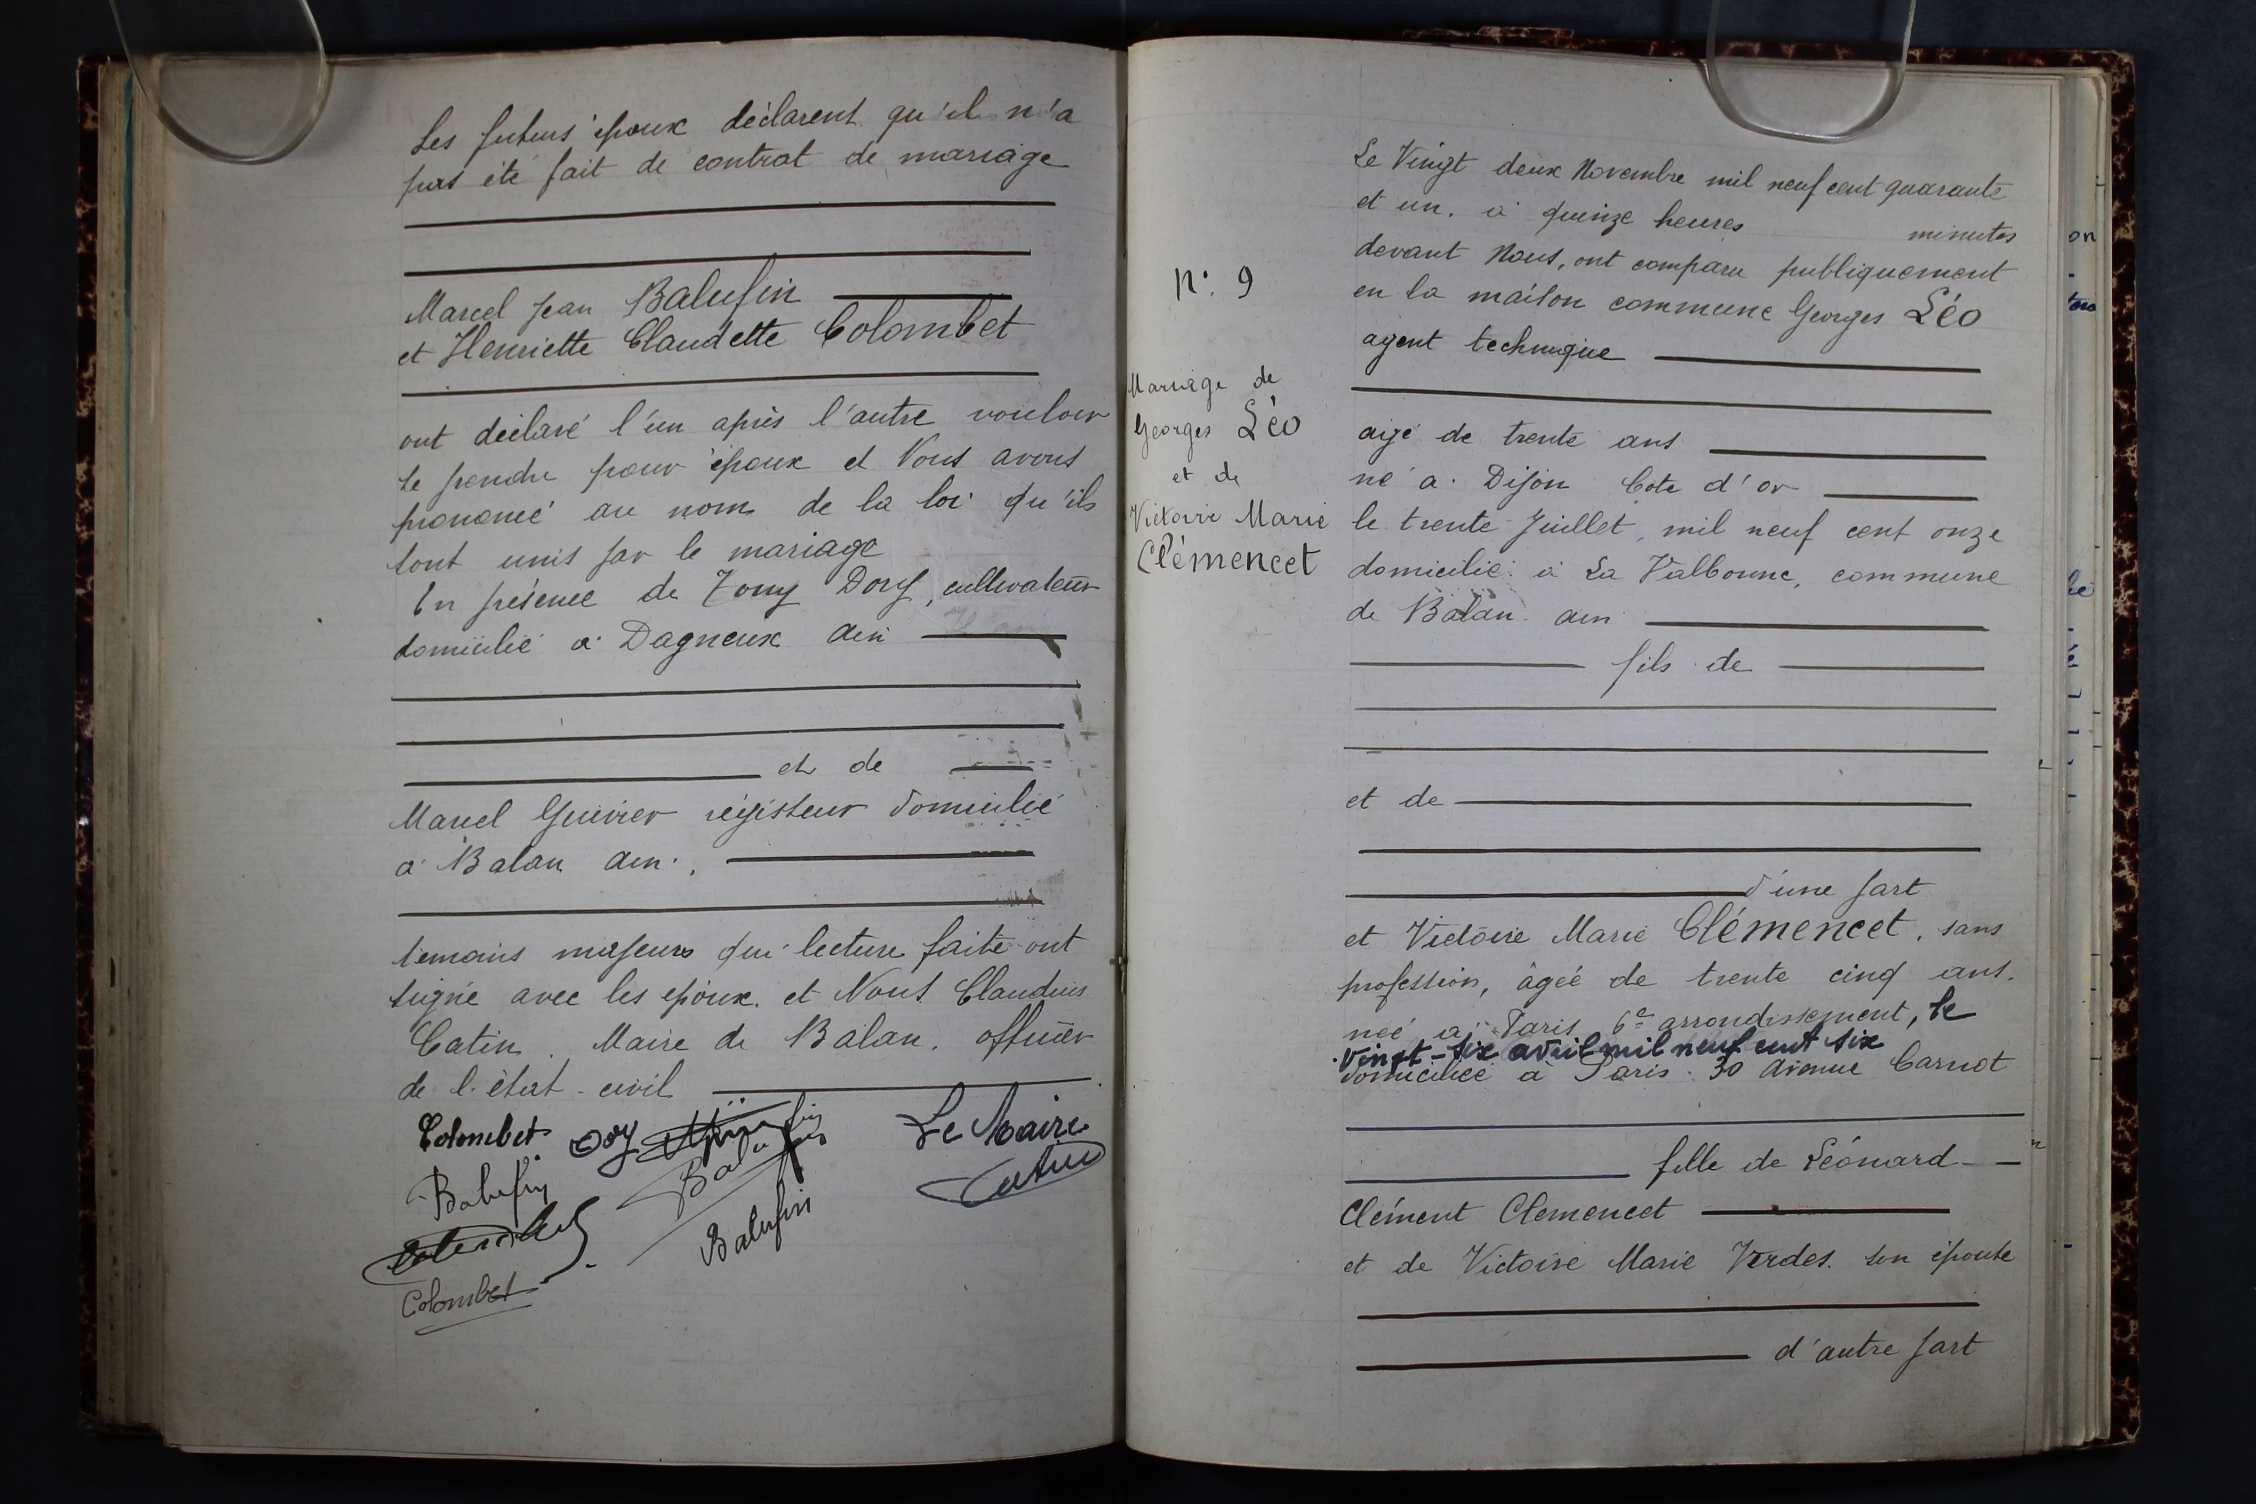 Les futurs époux déclarent qu'il n'a
pas été fait de contrat de mariage
Marcel Jean Balufin
et Henriette Claudette Colombet
ont déclaré l'un après l'autre vouloir
se prendre pour époux et Nous avons
prononcé au nom de la loi qu'ils
sont unis par le mariage
En présence de Tony Dory, cultivateur
domicilié à Dagneux Ain
et de
Marcel régisseur domicilié
à Balan Ain.,
témoins majeurs qui lecture faite ont
signé avec les époux. et Nous Claudius
Catin. Maire de Balan. officier
de l'état-civil
Colombet Doy Le Maire
Balufin Balufin Catin
Balufin
Colombet
N° 9
Mariage de
Georges Léo
et de
Victoire Marie
Clémencet
Le Vingt deux Novembre mil neuf cent quarante
et un. à quinze heures minutes
devant Nous, ont comparu publiquement
en la maison commune Georges Léo
agent technique
agé de trente ans
né à Dijon Cote d'or
le trente Juillet, mil neuf cent onze
domicilié à La Valbonne, commune
de Balan Ain
fils de
et de
d'une part
et Victoire Marie Clémencet, sans
profession, âgée de trente cinq ans.
née à Paris 6e arrondissement, le
vingt-six avril mil neuf cent six
domiciliée à Paris 30 Avenue Carnot
fille de Léonard
Clément Clemencet
et de Victoire Marie Verdes. son épouse
d'autre part